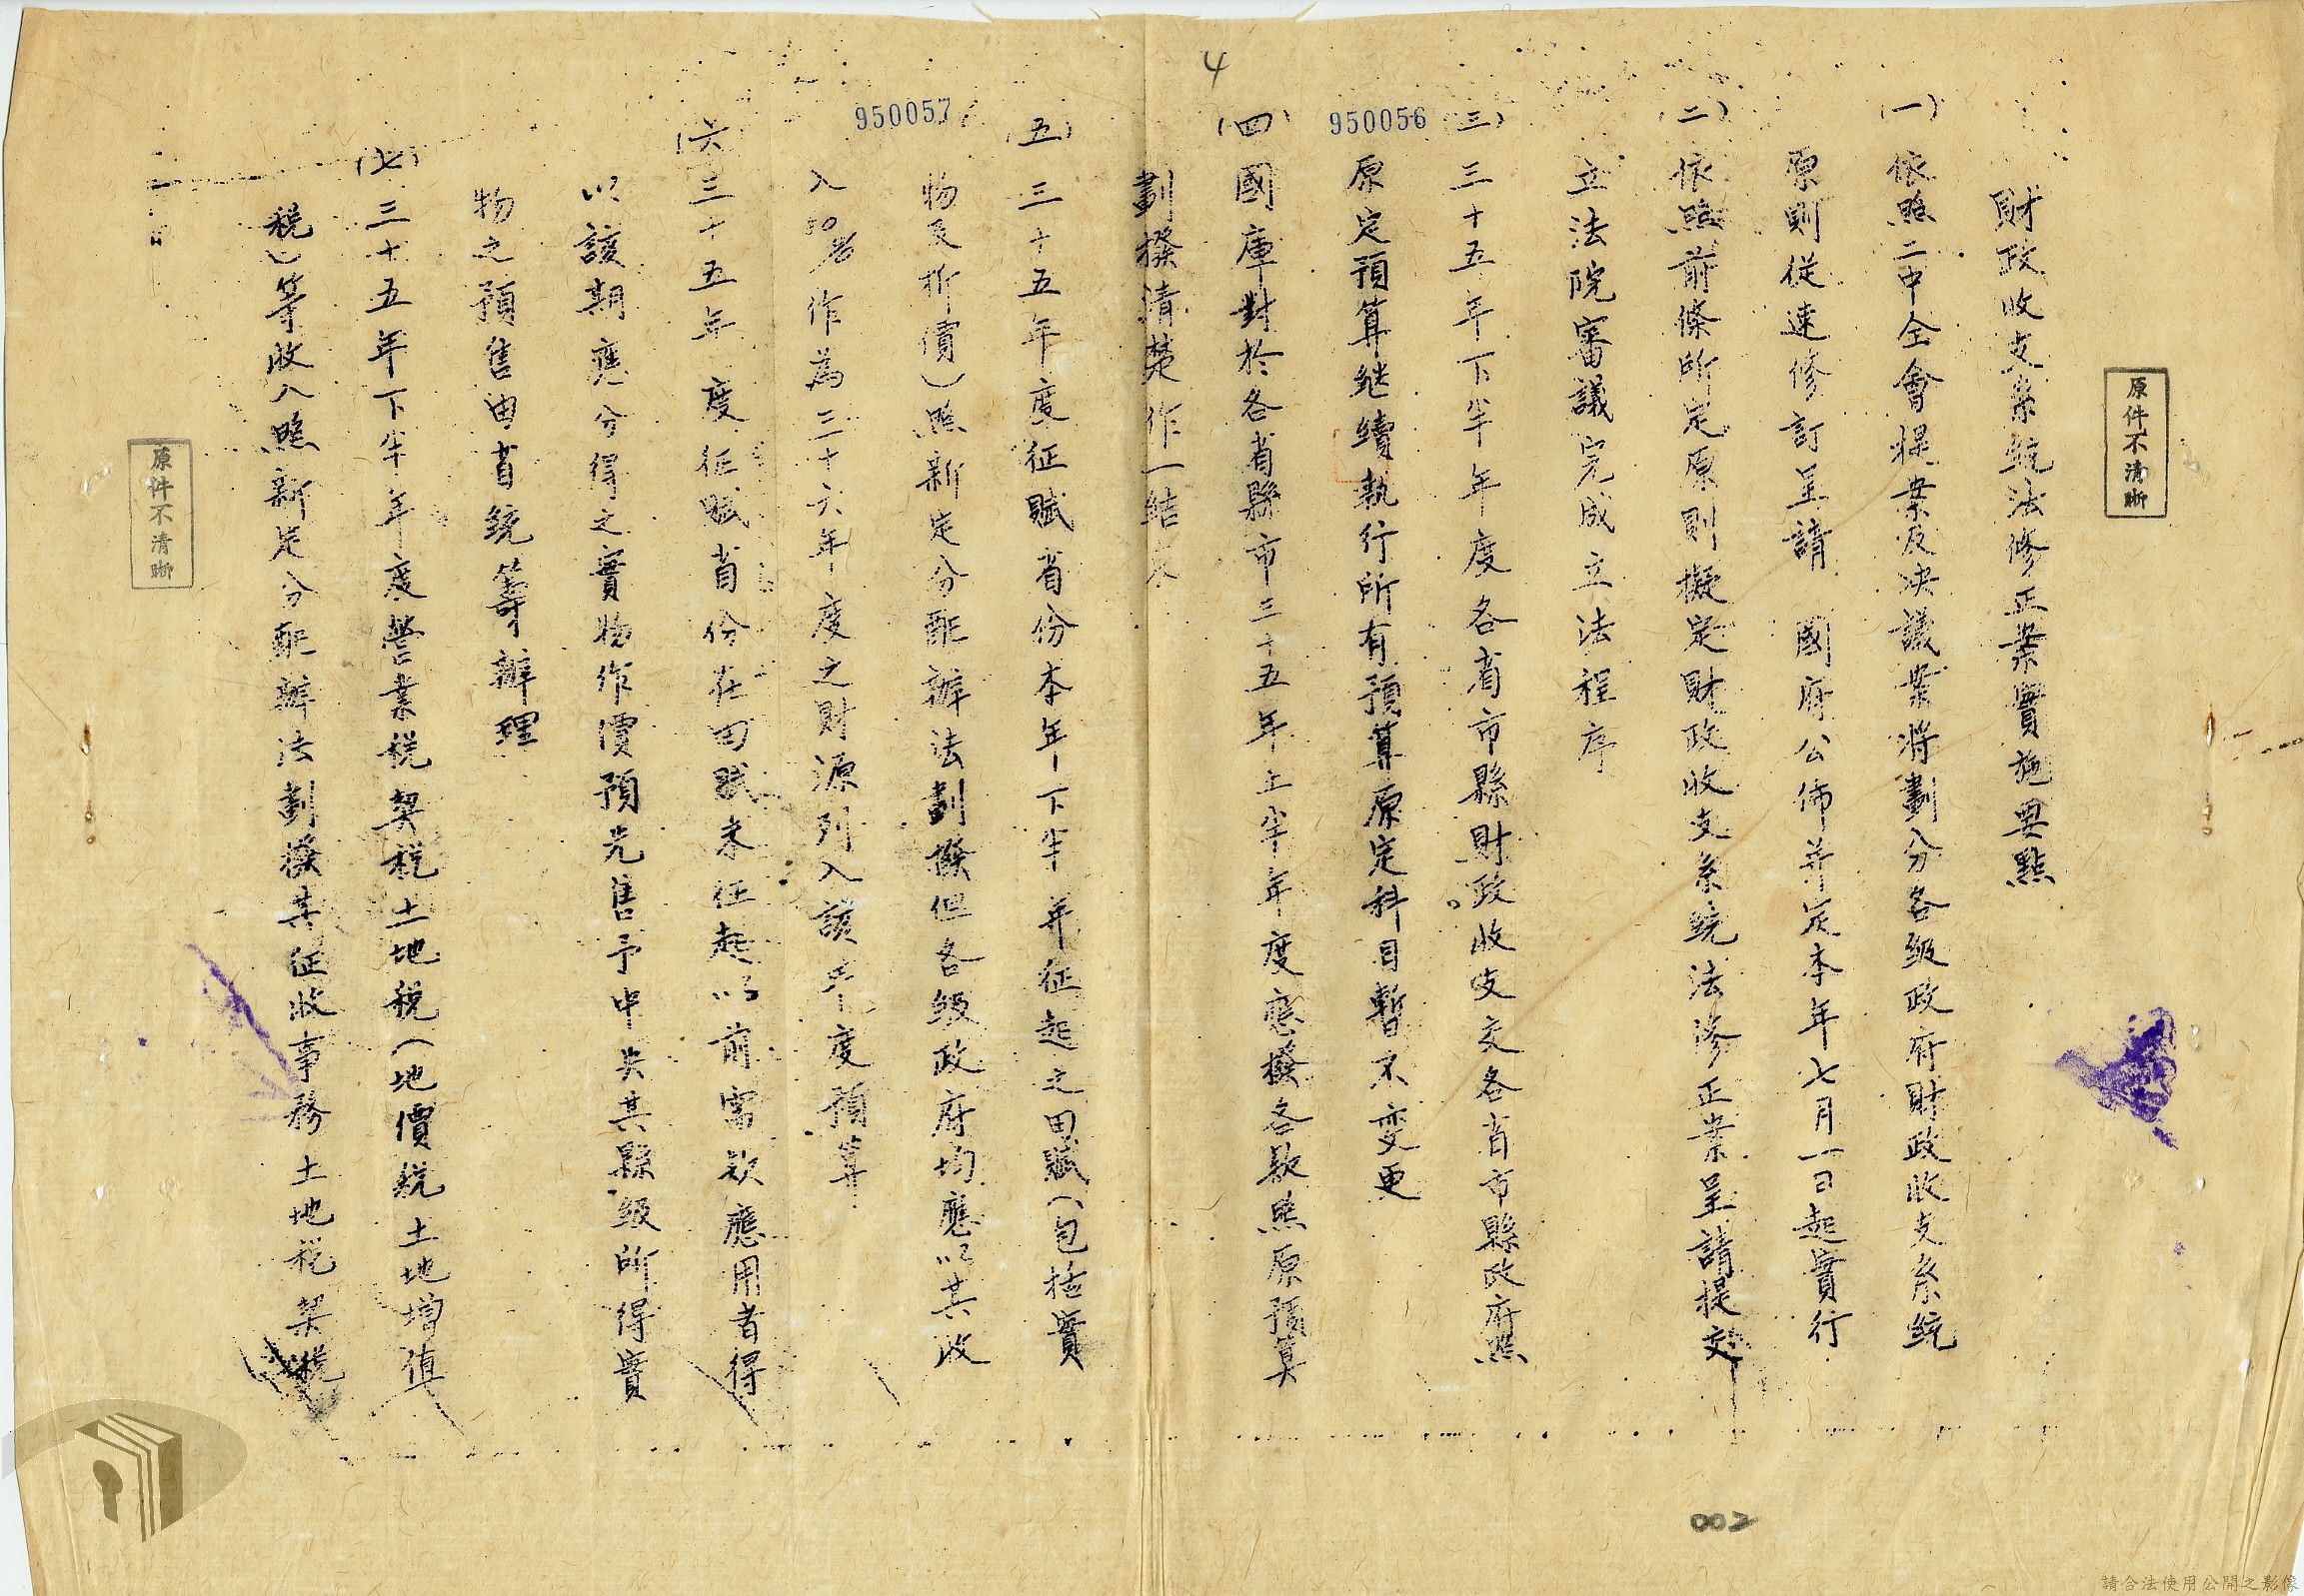 4
原件不清晰
財政收支系統法修正案實施要點
(一)依照二中全會提案及決議案將劃分各級政府財政收支系統
原則從速修訂呈請　國府公佈并定本年七月一日起實行
(二)依照前條所定原則擬定財政收支系統法修正案呈請提交
立法院審議完成立法程序
(三)三十五年下半年度各省市縣財政收支交各省市縣政府照
950056
原定預算繼續執行所有預算原定科目暫不变更
(四)國庫對於各省縣市三十五年上半年度應撥各款照原預算
劃撥清楚作一結束
(五)三十五年度征賦省份本年下半年征起之田賦(包括實
950057
物及折價)照新定分配辦法劃撥但各級政府均應以其收
入50%作為三十六年度之財源列入該年度預算
(六)三十五年度征賦省份在田賦未征起以前需款應用者得
以該期應分得之實物作價預先售予中央其縣級所得實
物之預售由省統籌辦理
(七)三十五年下半年度營業稅契稅土地稅(地價稅土地增值
稅)等收入照新定分配辦法劃撥其征收事務土地稅契稅
原件不清晰
002
請合法使用公開之影像